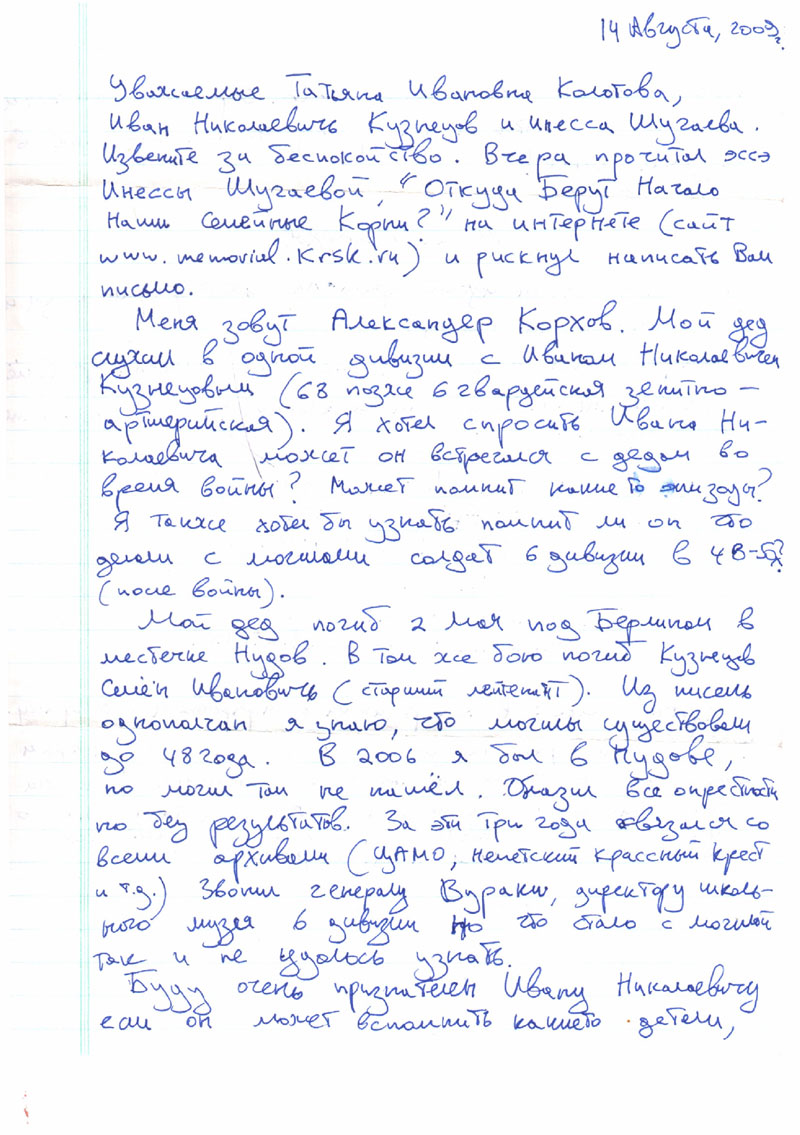 14 Августа, 2009г.
Уважаемые Татьяна Ивановна Колотова,
Иван Николаевичь Кузнецов и инесса Шугаева.
Извените за беспокойство. Вчера прочитал эссэ
Инессы Шугаевой, "Откуда Берут Начало
Наши Семейные Корни?" на интернете (сайт
www.memorial.krsk.ru) и рискнул написать Вам
письмо.
Меня зовут Александер Корхов. Мой дед
служил в одной дивизии с Иваном Николаевичем
Кузнецовым (68 позже 6 гвардейская зенитно-
артилерийская). Я хотел спросить Ивана Ни-
колаевича может он встречался с дедом во
время войны? Может помнит какие то эпизоды?
Я также хотел бы узнать помнит ли он что
делали с могилами солдат 6 дивизии в 48-50х?
(после войны).
Мой дед погиб 2 мая под Берлином в
местечке Нудов. В том же бою погиб Кузнецов
Семён Ивановичь (старший лейтенант). Из писем
однополчан я узнаю, что могилы существовали
до 48 года. В 2006 я был в Нудове,
но могил там не нашёл. Облазил все окрестности
но без результатов. За эти три года связался со
всеми архивами (ЦАМО, неметский крассный крест
и т.д.) Звонил генералу Вураки, директору школь-
ного музея 6 дивизии но что стало с могилой
так и не удалось узнать.
Буду очень признателен Ивану Николаевичу
если он может вспомнить какието детели,